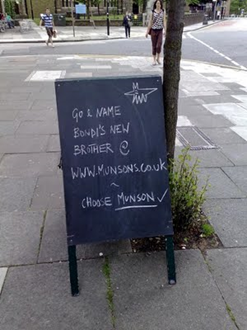 GO & NAME
BONDI'S NEW
BROTHER @
WWW.MUNSONS.CO.UK
~
CHOOSE MUNSON ✓